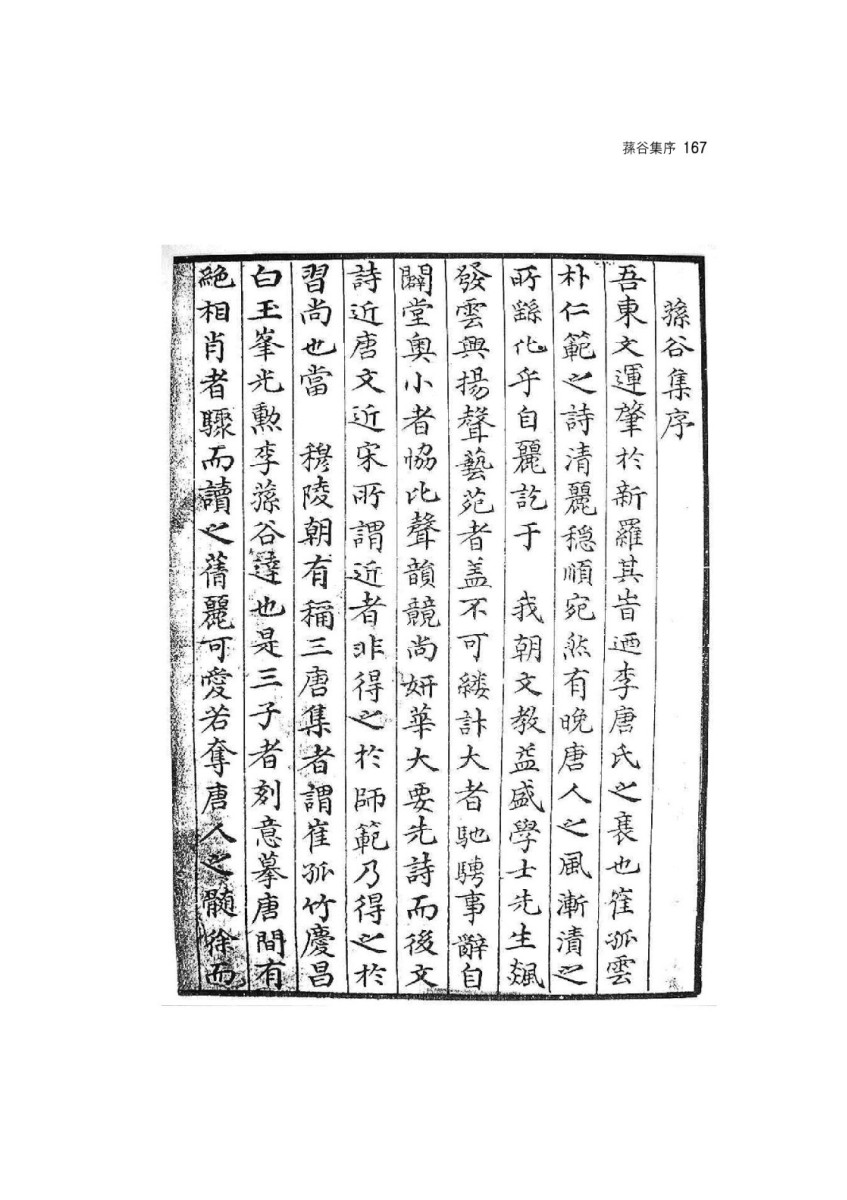 蓀谷集序 167
蓀谷集序
吾東文運肇於新羅其旹迺李唐氏之衰也崔孤雲
朴仁範之詩淸麗穩順宛然有晩唐人之風漸漬之
所繇化乎自麗訖于 我朝文教益盛學士先生飆
發雲興揚聲藝苑者盖不可縷計大者馳騁事辭自
闢堂奧小者恊比聲韻競尚姸華大要先詩而後文
詩近唐文近宋所謂近者非得之於師範乃得之於
習尚也當 穆陵朝有稱三唐集者謂崔孤竹慶昌
白玉峯光勲李蓀谷達也是三子者刻意摹唐間有
絶相肖者驟而讀之蒨麗可愛若奪唐人之髓徐而